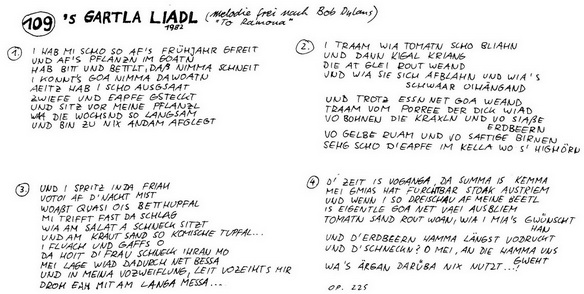 109 's GARTLA LIADL (Melodie frei nach Bob Dylans
1982 "To Ramona")
1. I HAB MI SCHO SO AF'S FRÜHJAHR GFREIT
UND AF'S PFLANZN IM GOATN
HAB BITT UND BETTLT, DAß NIMMA SCHNEIT
I KONNT'S GOA NIMMA DAWOATN
AEITZ HAB I SCHO AUSGSAAT
ZWIEFE UND EAPFE GSTECKT
UND SITZ VOR MEINE PFLANZL
WIA DIE WOCHSND SO LANGSAM
UND BIN ZU NIX ANDAM AFGLEGT
2. I TRAAM WIA TOMATN SCHO BLIAHN
UND DANN KIGAL KRIANG
DIE AT GLEI ROUT WEAND
UND WIA SIE SICH AFBLAHN UND WIA'S
SCHWAAR OIHÄNGAND
UND TROTZ ESSN NET GOA WEAND
TRAAM VOM PORREE DER DICK WIAD
VO BOHNEN DIE KRAXLN UND VO SIAßE
ERDBEERN
VO GELBE RUAM UND VO SAFTIGE BIRNEN
SEHG SCHO D'EAPFE IM KELLA WO S' HIGHÖRN
3. UND I SPRITZ IN DA FRIAH
VOTOI AF D'NACHT MIST
WOAßT QUASI OIS BETTHUPFAL
MI TRIFFT FAST DA SCHLAG
WIA AM SALAT A SCHNECK SITZT
UND AM KRAUT SAND SO KOMISCHE TUPFAL...
I FLUACH UND GAFFS O
DA HOIT D'FRAU SCHNECK IHRAN MO
MEI LAGE WIAD DADURCH NET BESSA
UND IN MEINA VOZWEIFLUNG, LEIT VOZEIHTS MIR
DROH EAH MIT AM LANGA MESSA...
4. D' ZEIT IS VOGANGA, DA SUMMA IS KEMMA
MEI GMIAS HAT FURCHTBAR STOAK AUSTRIEM
UND WENN I SO DREISCHAU AF MEINE BEETL
IS EIGENTLE GOA NET VAEI AUSBLIEM
TOMATN SAND ROUT WOAN, WIA I MIA'S GWÜNSCHT
HAN
UND D'ERDBEERN HAMMA LÄNGST VODRUCKT
UND D'SCHNECKN? O MEI, AN DIE HAMMA UNS
GWEHT
WA'S ÄRGAN DARÜBA NIX NUTZT...?
OP. 225